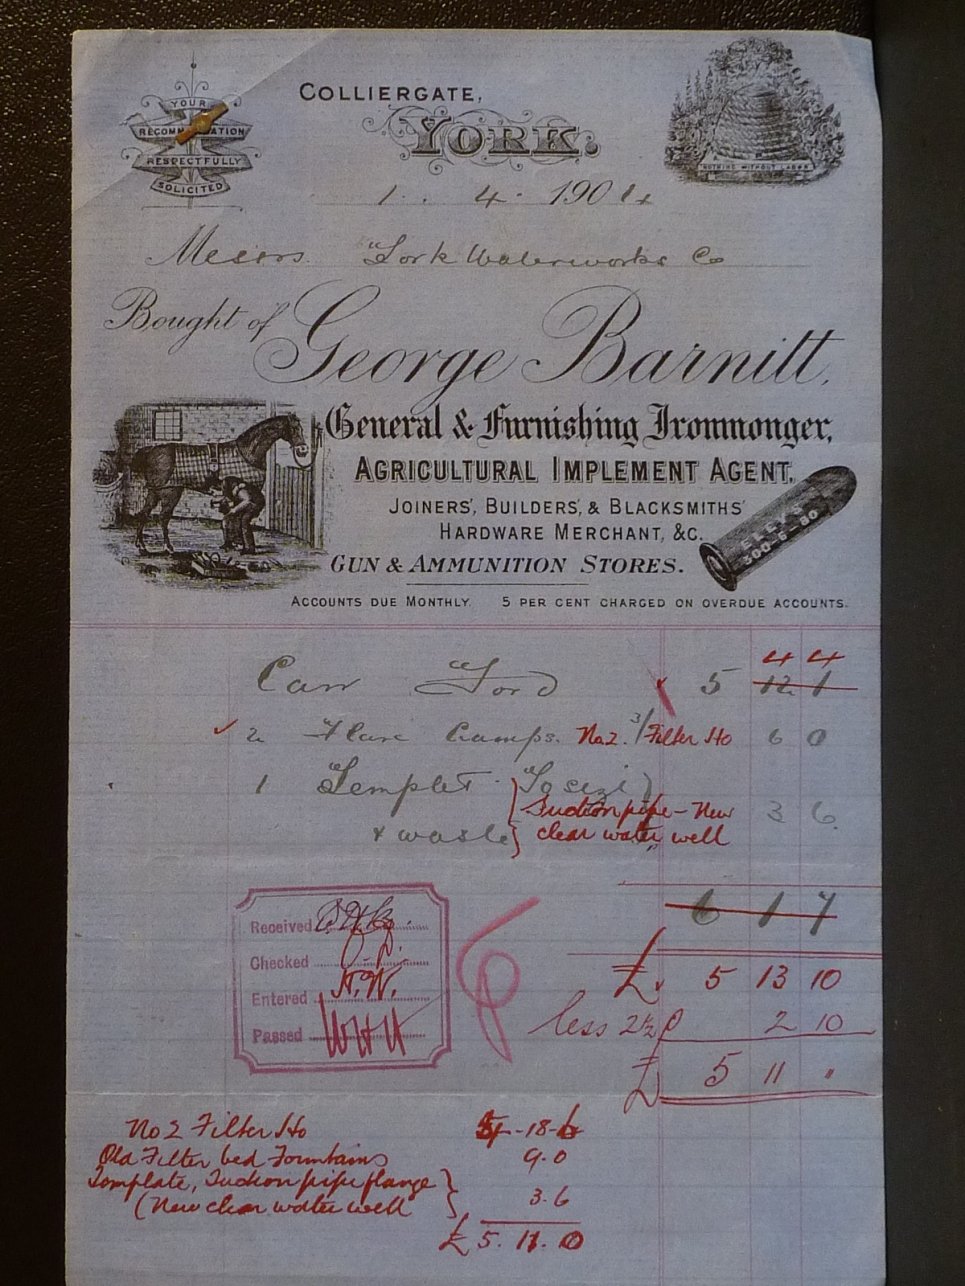 YOUR
RECOMM ATION
RESPECTFULLY
SOLICITED
COLLIERGATE,
YORK.
NOTHING WITHOUT LABOR
1 . 4 . 1904
Messrs. York Waterworks Co
Bought of George Barnitt,
General & Furnishing Ironmonger,
AGRICULTURAL IMPLEMENT AGENT.
JOINERS', BUILDERS', & BLACKSMITHS'
HARDWARE MERCHANT, &C.
GUN & AMMUNITION STORES.
500-6-80
ACCOUNTS DUE MONTHLY. 5 PER CENT CHARGED ON OVERDUE ACCOUNTS.
4 4
Carr Ford 5 12 1
2 Flare Lamps. No 2. 3/ Filter Ho 6 0
1 Templet To size
Suction pipe - New 3 6.
& waste clear water well
6 1 7
Received
Checked J. D.
Entered H.W.
Passed WHH
£ 5 13 10
less 2½ 2 10
£ 5 11 "
No 2 Filter Ho 4-18-6
Old Filter bed Fountains 9.0
Template, Suction pipe flange 3.6
(New clear water well
£ 5. 11. 0